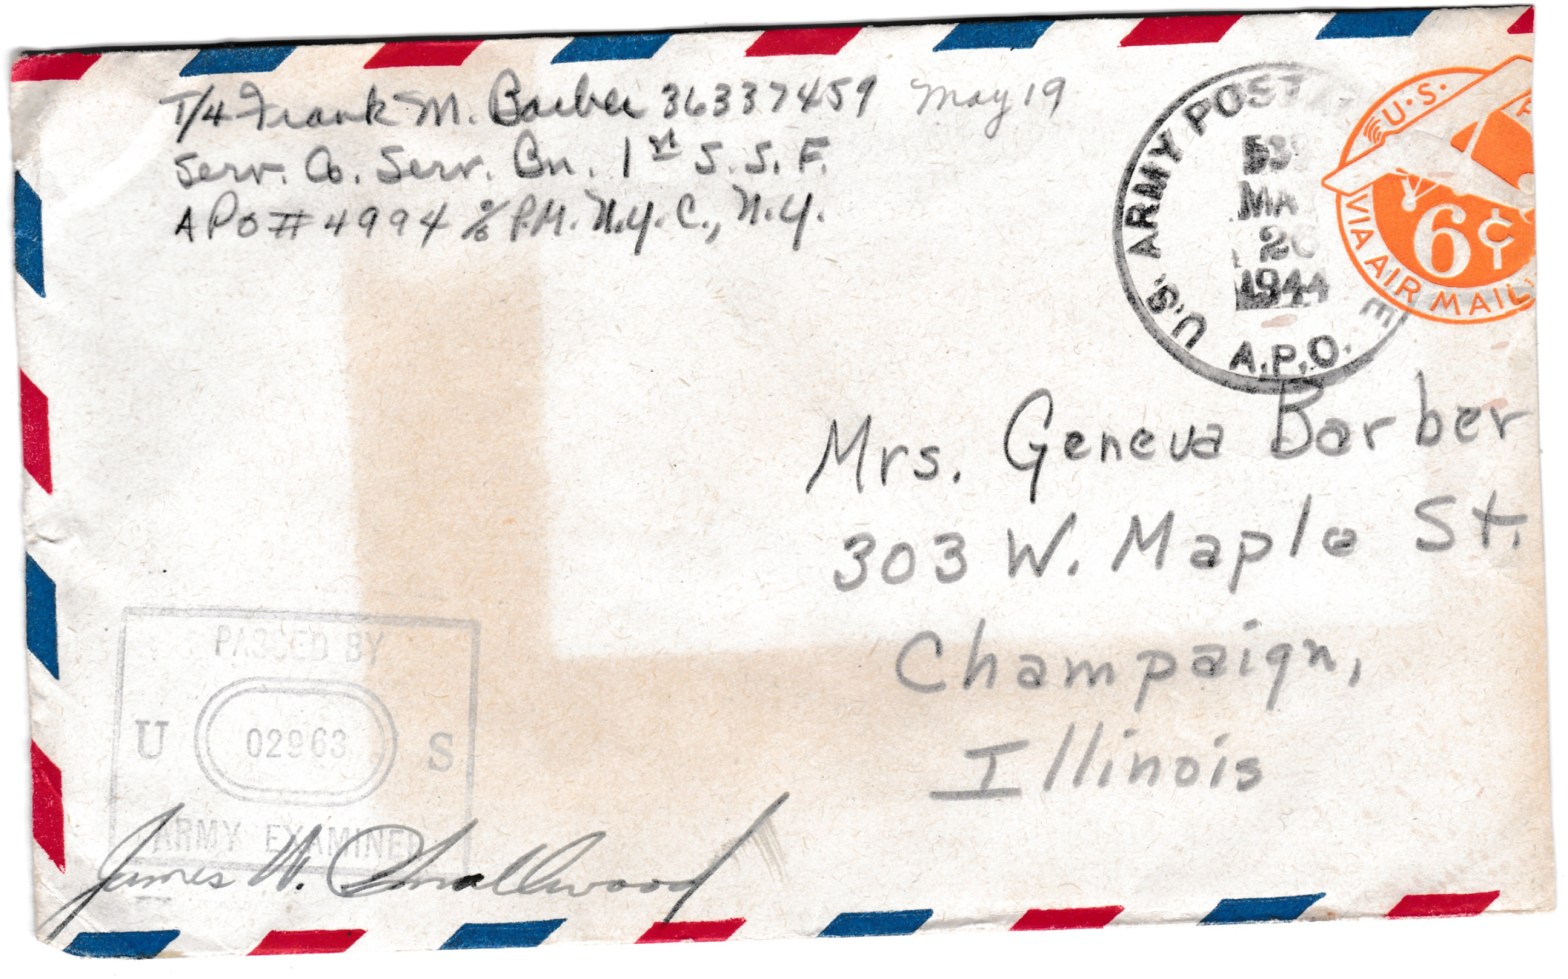 T/4 Frank M. Barber 36337459 May 19
Serv. Co. Serv. Bn. 1st S. S. F.
APO # 4994 % P.M. N.Y.C., N.Y.
U.S. ARMY POSTAL
MA
1944
A.P.O.
U.S.
6¢
VIA AIR MAIL
Mrs. Geneva Barber
303 W. Maple St.
Champaign,
Illinois
PASSED BY
U 02963 S
ARMY EXAMINER
James W. Smallwood